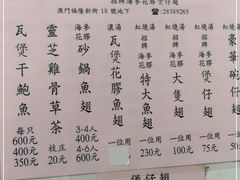 招牌海參花膠煲仔翅
澳門福隆新街 18 號地下 ☎28389265
瓦煲干鮑魚
每只
600元
400元
350元
靈芝雞骨草茶
枝庄
20元
海參
花膠
砂鍋魚翅
3-4人
400元
4-6人
600元
濃湯
瓦煲花膠魚翅
紅燒
招牌
特大魚翅
一位用
230元
紅燒
海參
花膠
煲仔翅
一位用
100元
紅燒
招牌
大隻翅
一位用
75元
紅燒
招牌
煲仔翅
一位用
50元
豪華碗仔翅
煲仔翅